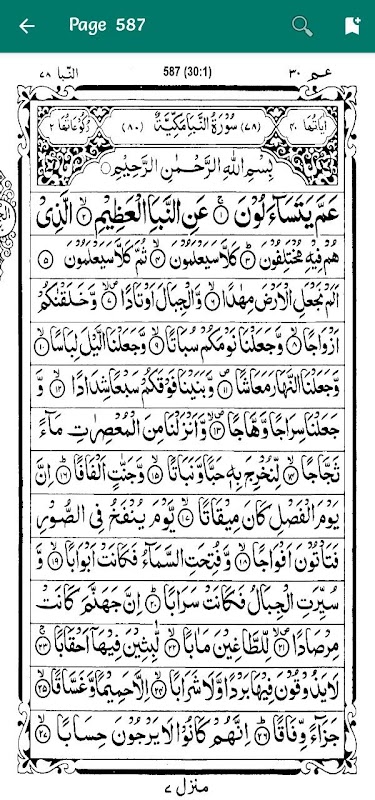 Page 587
النبا ٧٨
587 (30:1)
عم ٣٠
اٰیَاتُهَا ٤٠
(٧٨) سُوْرَةُ النَّبَاِ مَكِّیَّةٌ (٨٠)
رُكُوْعَاتُهَا ٢
بِسْمِ اللّٰهِ الرَّحْمٰنِ الرَّحِیْمِ
عَمَّ یَتَسَآءَلُوْنَ ۚ﴿١﴾ عَنِ النَّبَاِ الْعَظِیْمِ ۙ﴿٢﴾ الَّذِیْ
هُمْ فِیْهِ مُخْتَلِفُوْنَ ؕ﴿٣﴾ كَلَّا سَیَعْلَمُوْنَ ۙ﴿٤﴾ ثُمَّ كَلَّا سَیَعْلَمُوْنَ ﴿٥﴾
اَلَمْ نَجْعَلِ الْاَرْضَ مِهٰدًا ۙ﴿٦﴾ وَّالْجِبَالَ اَوْتَادًا ۪ۙ﴿٧﴾ وَّخَلَقْنٰكُمْ
اَزْوَاجًا ۙ﴿٨﴾ وَّجَعَلْنَا نَوْمَكُمْ سُبَاتًا ۙ﴿٩﴾ وَّجَعَلْنَا الَّیْلَ لِبَاسًا ۙ﴿١٠﴾
وَّجَعَلْنَا النَّهَارَ مَعَاشًا ۪﴿١١﴾ وَّبَنَیْنَا فَوْقَكُمْ سَبْعًا شِدَادًا ۙ﴿١٢﴾ وَّ
جَعَلْنَا سِرَاجًا وَّهَّاجًا ۪ۙ﴿١٣﴾ وَّاَنْزَلْنَا مِنَ الْمُعْصِرٰتِ مَآءً
ثَجَّاجًا ۙ﴿١٤﴾ لِّنُخْرِجَ بِهٖ حَبًّا وَّنَبَاتًا ۙ﴿١٥﴾ وَّجَنّٰتٍ اَلْفَافًا ؕ﴿١٦﴾ اِنَّ
یَوْمَ الْفَصْلِ كَانَ مِیْقَاتًا ۙ﴿١٧﴾ یَّوْمَ یُنْفَخُ فِی الصُّوْرِ
فَتَاْتُوْنَ اَفْوَاجًا ۙ﴿١٨﴾ وَّفُتِحَتِ السَّمَآءُ فَكَانَتْ اَبْوَابًا ۙ﴿١٩﴾ وَّ
سُیِّرَتِ الْجِبَالُ فَكَانَتْ سَرَابًا ؕ﴿٢٠﴾ اِنَّ جَهَنَّمَ كَانَتْ
مِرْصَادًا ۪ۙ﴿٢١﴾ لِّلطَّاغِیْنَ مَاٰبًا ۙ﴿٢٢﴾ لّٰبِثِیْنَ فِیْهَاۤ اَحْقَابًا ۚ﴿٢٣﴾
لَا یَذُوْقُوْنَ فِیْهَا بَرْدًا وَّلَا شَرَابًا ۙ﴿٢٤﴾ اِلَّا حَمِیْمًا وَّغَسَّاقًا ۙ﴿٢٥﴾
جَزَآءً وِّفَاقًا ؕ﴿٢٦﴾ اِنَّهُمْ كَانُوْا لَا یَرْجُوْنَ حِسَابًا ۙ﴿٢٧﴾
منزل ٧